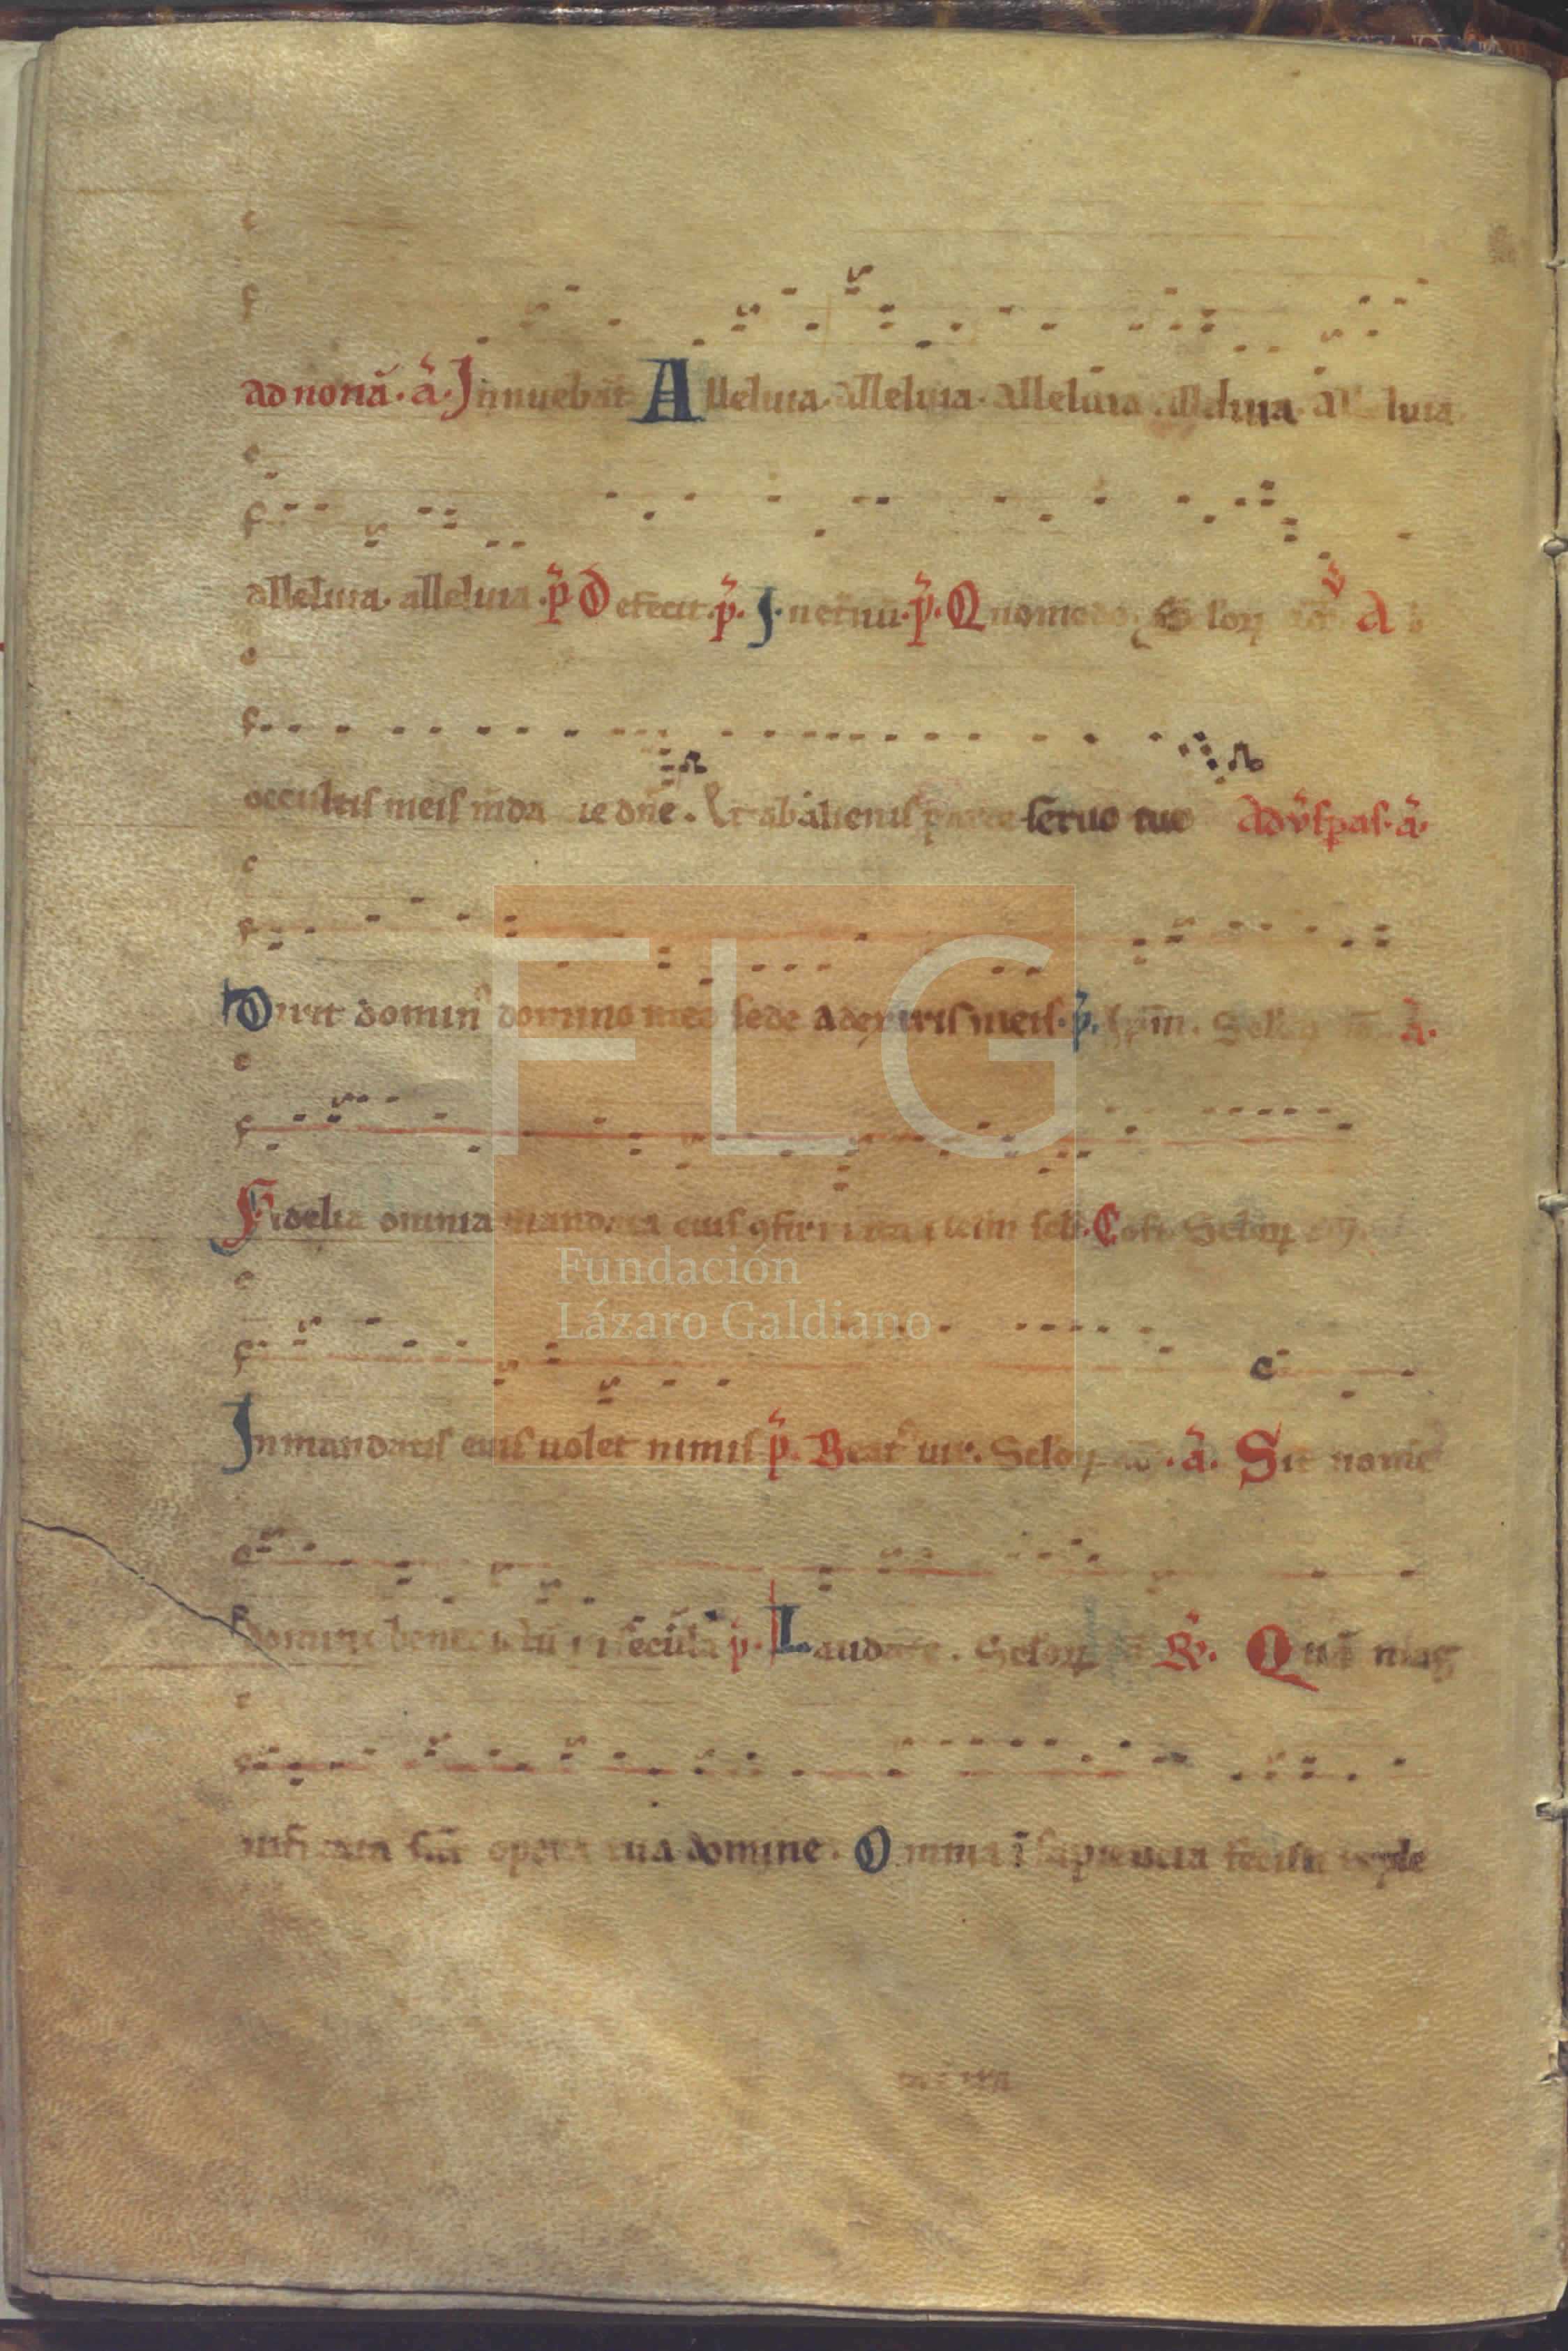 ad nonã. ã. Innuebãt Alleluia. alleluia. alleluia. alleluia. all luia
alleluia. alleluia. p̃ Defecit. p̃. In et̃nũ. p̃. Quomodo. Sclorꝝ ṽ Ab
occultis meis mda me dñe. Et ab alienis parce seruo tuo Ad ṽspas. ã.
Dixit domin' domino meo sede a dextris meis. p̃. ipm̃. Sclorꝝ ã.
Fidelia omnia mandata eius ꝯfirmata scli. Cofi. Sclorꝝ
In mandatis eius uolet nimis p̃. Beat' uir. Sclorꝝ am̃. ã. Sit nomẽ
domini benedictũ in secula p̃. Laudate. Sclorꝝ R̃. Quã mag
nificata sũt opera tua domine. Omnia ĩ sapientia fecisti imple
Fundación
Lázaro Galdiano
FLG